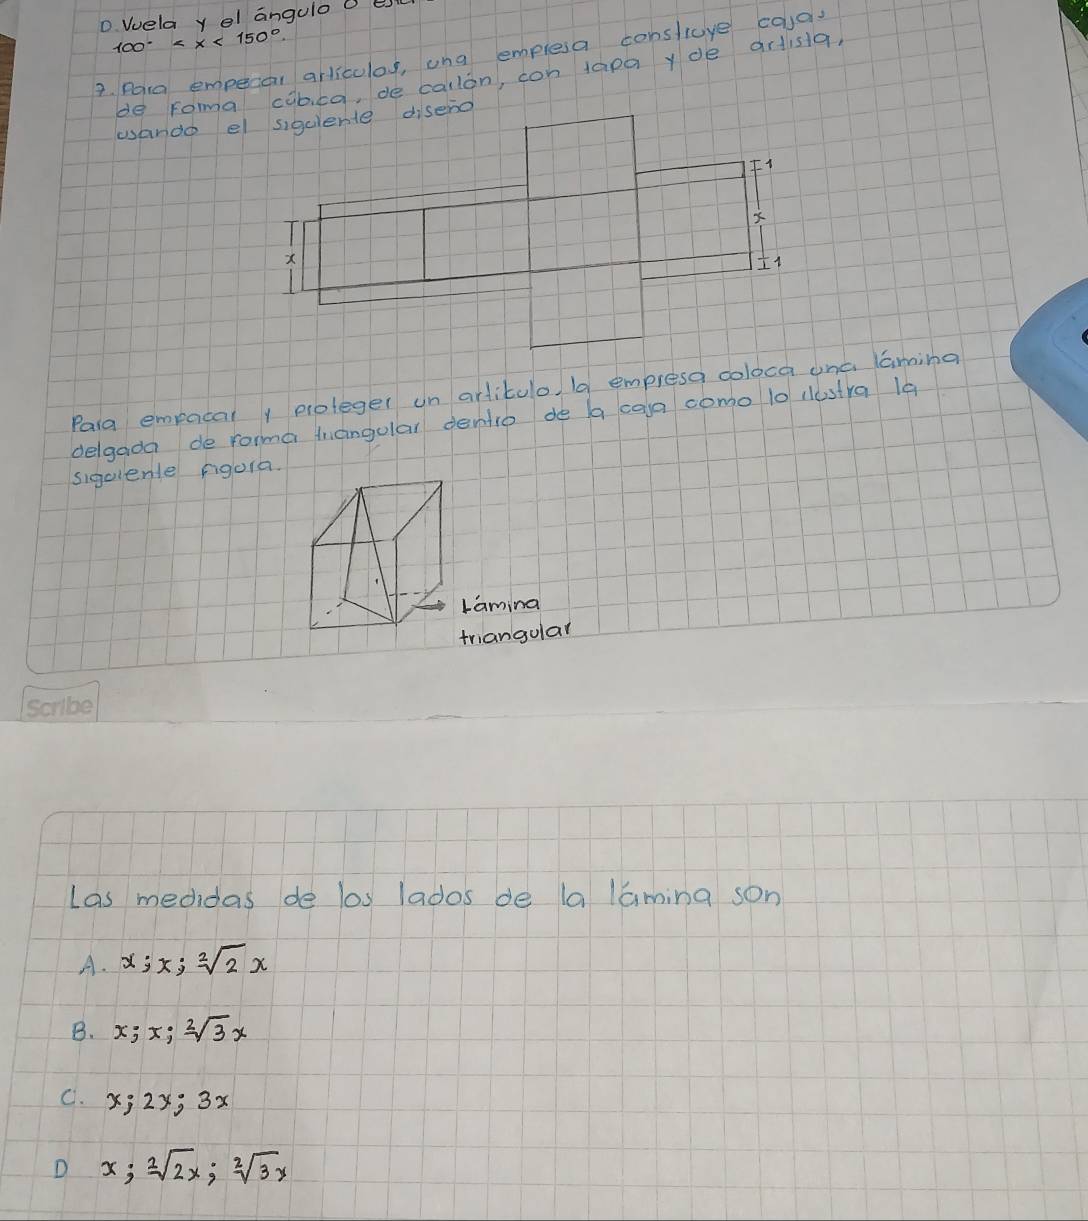 D. Vuela y el ángulo
100° < x < 150°.
7. Para empecar articulos, una empresa construye cajas
de Forma cúbica, de cartón, con tapa y de artista,
usando el siguiente diseño
1
x
x
1
Para empacar y proteger un artitulo, la empresa coloca una lámina
delgada de forma triangular dentro de la caja como lo ilustra la
siguiente figura.
Lámina
triangular
Scribe
Las medidas de los lados de la lámina son
A. x; x; ²√2 x
B. x; x; ²√3 x
C. x; 2x; 3x
D x; ²√2x; ²√3x